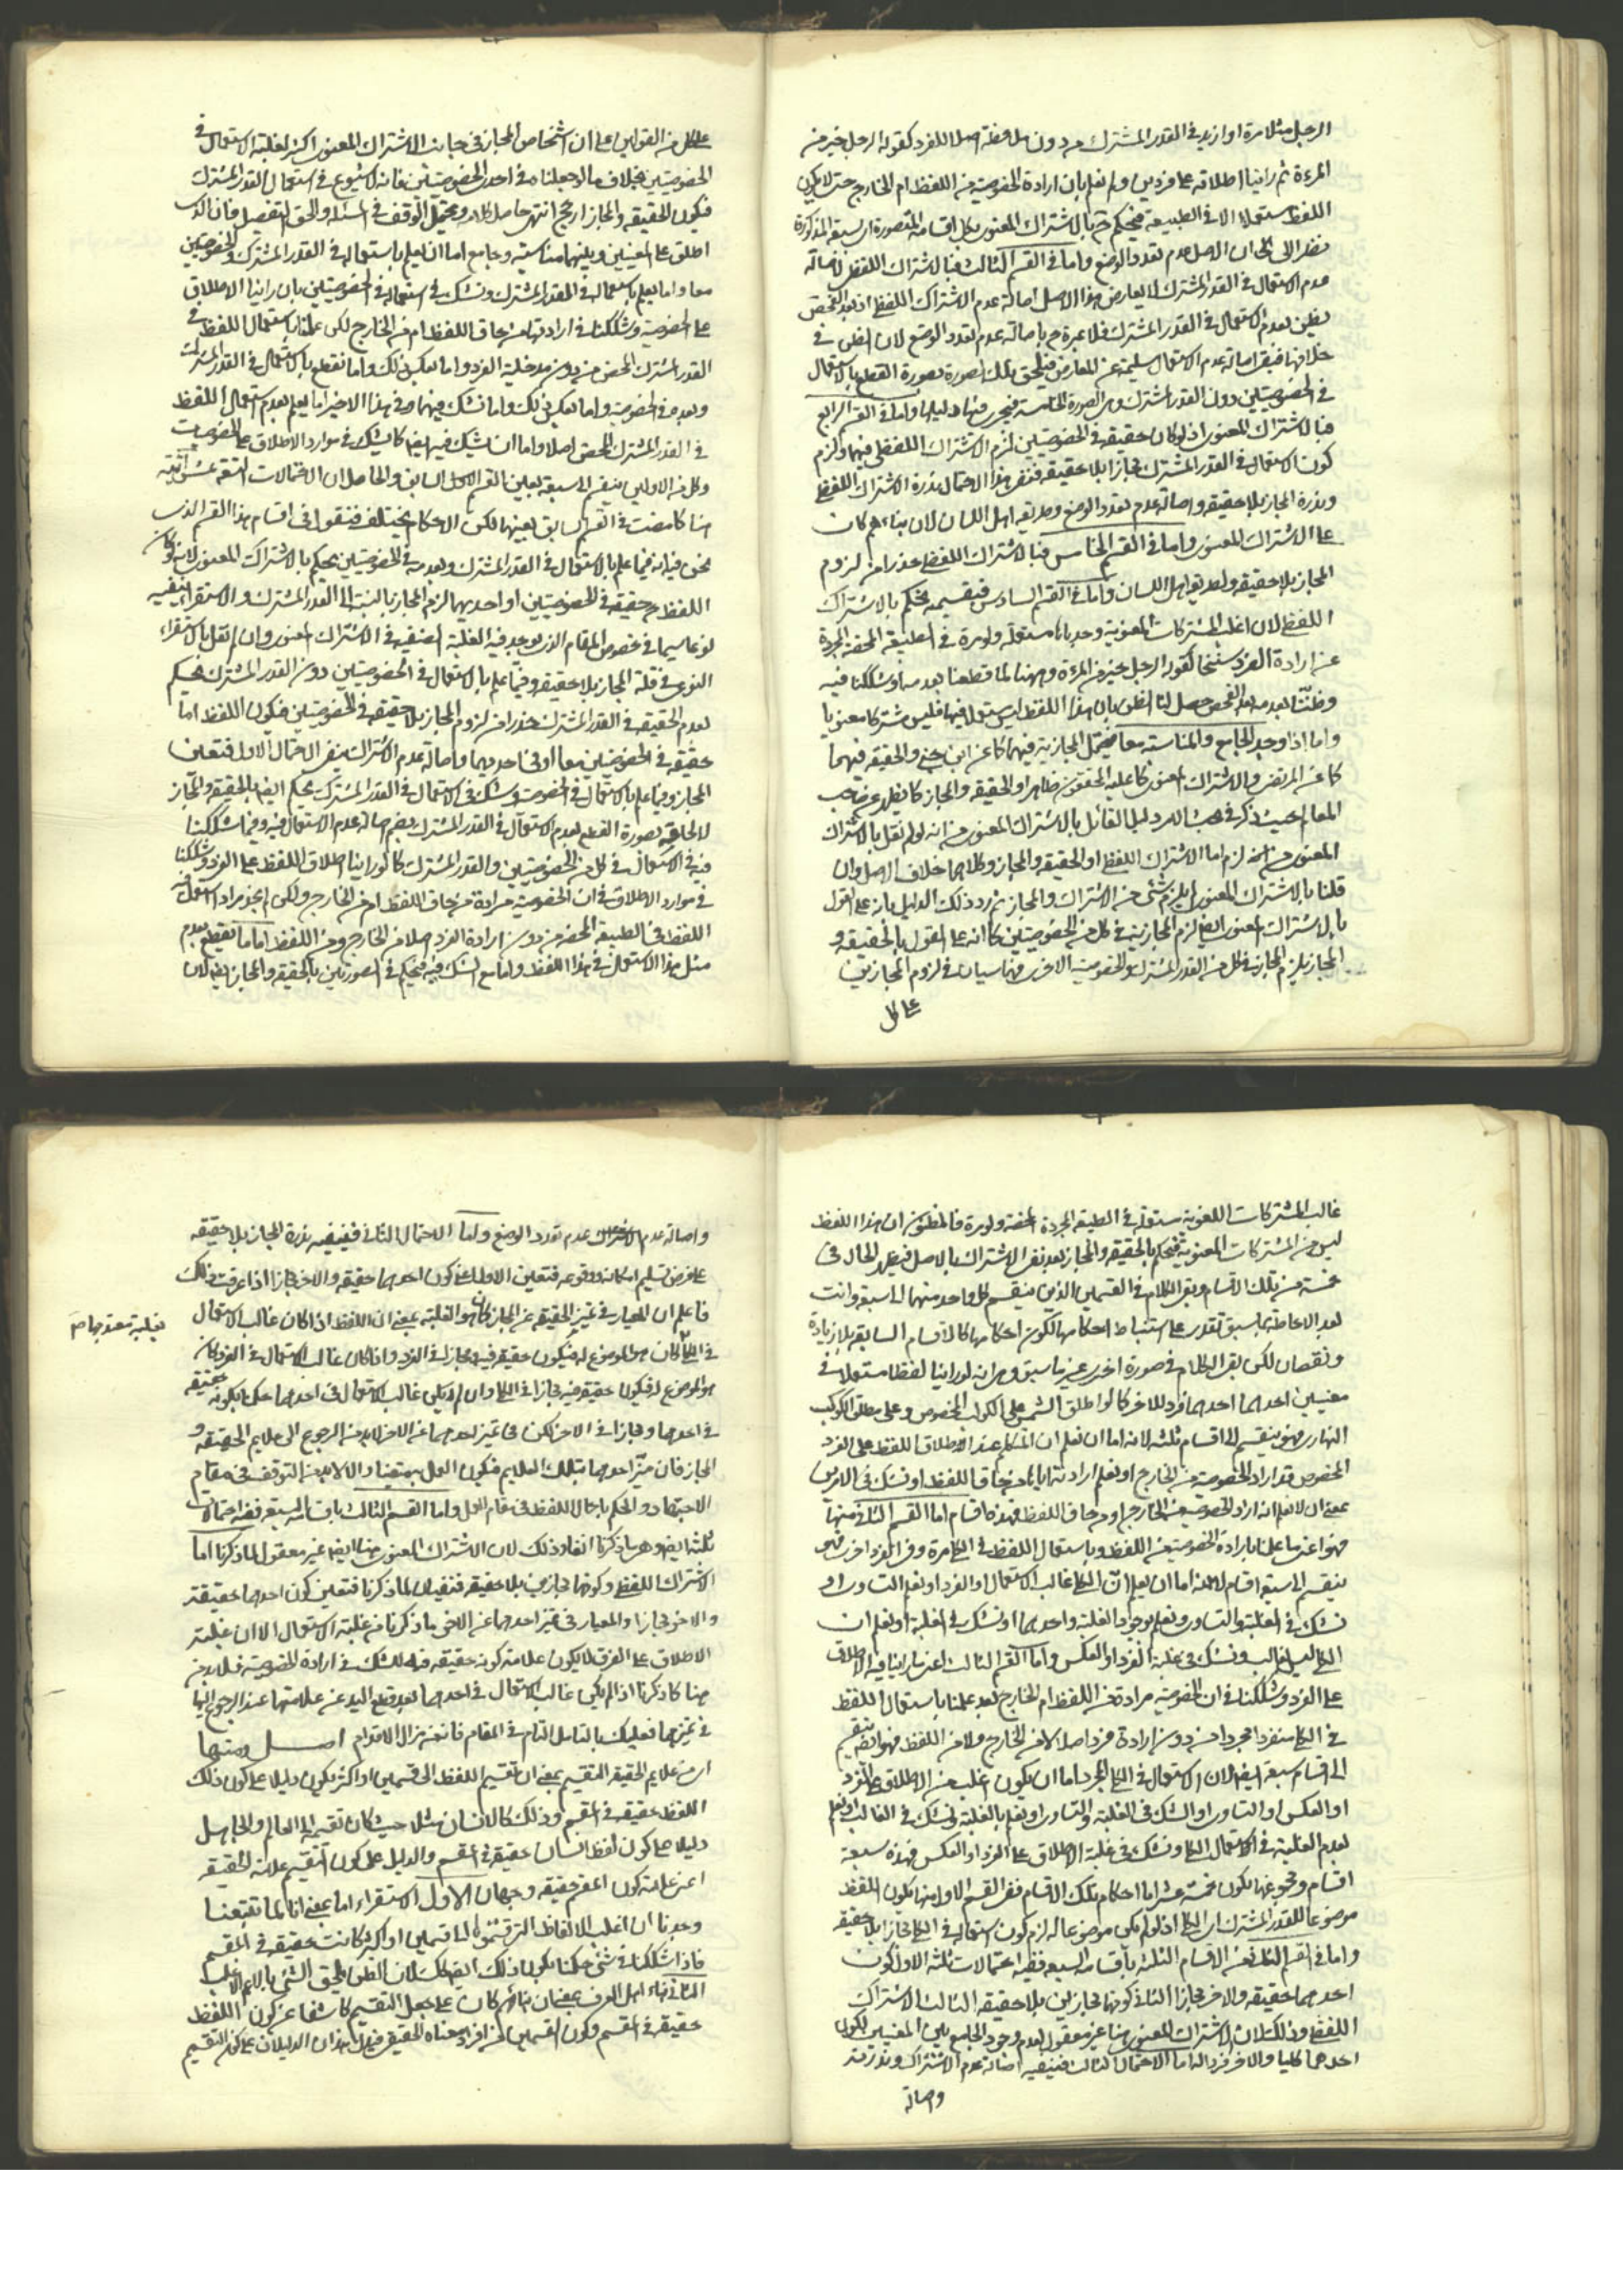 الرجل مثلا مرة اواريد في القدر المشترك من دون ملاحظة اصلا للفرد كقوله الرجل خير من
المرءة ثم راينا اطلاقه على فردين ولم نعلم بان ارادة الخصوصية من اللفظ ام الخارج حتى لا يكون
اللفظ مستعملا الا في الطبيعة فيحكم ح بالاشتراك المعنوي بكل اقسامه المتصورة السبعة المذكورة
نظرا الى ان الاصل عدم تعدد الوضع واما في القسم الثالث فبالاشتراك اللفظي لاصالة
عدم الاستعمال في القدر المشترك لا يعارض هذا الاصل اصالة عدم الاشتراك اللفظي اذ بعد الفحص
يظن بعدم الاستعمال في القدر المشترك فلا عبرة ح باصالة عدم تعدد الوضع لان الظن في
خلافها فيبقى اصالة عدم الاستعمال سليمة عن المعارض فيلحق تلك الصورة بصورة القطع بالاستعمال
في الخصوصيتين دون القدر المشترك وهي الصورة الخامسة فيجري فيها دليلها واما في القسم الرابع
فبالاشتراك المعنوي اذ لو كان حقيقة في الخصوصيتين لزم الاشتراك اللفظي فيهما ولزم
كون الاستعمال في القدر المشترك مجازا بلا حقيقة فننفي هذا الاحتمال بندرة الاشتراك اللفظي
وندرة المجاز بلا حقيقة واصالة عدم تعدد الوضع وطريقة اهل اللسان لان بناءهم كان
على الاشتراك المعنوي واما في القسم الخامس فبالاشتراك اللفظي حذرا من لزوم
المجاز بلا حقيقة ولطريقة اهل اللسان واما في القسم السادس فبقسميه يحكم بالاشتراك
اللفظي لان اغلب المشتركات المعنوية وجدناها مستعملة ولو مرة في الطبيعة المحضة المجردة
عن ارادة الفرد منها كقوله الرجل خير من المرءة وههنا لما قطعنا بعدمه او شككنا فيه
وظننا بعدمه بعد الفحص حصل لنا الظن بان هذا اللفظ ليس مستعملا فيها فليس مشتركا معنويا
واما اذا وجد الجامع والمناسبة معا فيحتمل المجازية فيهما كما عن ابن جني والحقيقة فيهما
كما عن المرتضى والاشتراك المعنوي كما عليه المحققون ظاهرا والحقيقة والمجاز كما يظهر عن صاحب
المعالم حيث ذكر في مبحث الامر دليل القائل بالاشتراك المعنوي من انه لو لم نقل بالاشتراك
المعنوي لزم اما الاشتراك اللفظي او الحقيقة والمجاز وكلاهما خلاف الاصل وان
قلنا بالاشتراك المعنوي لم يلزم شئ من الاشتراك والمجاز ثم رد ذلك الدليل بانه على القول
بالاشتراك المعنوي ايضا لزم المجازية في كل من الخصوصيتين كما انه على القول بالحقيقة و
المجاز يلزم المجازية في كل من القدر المشترك والخصوصية الاخرى فهما سيان في لزوم المجازين
على كل
على كل من القولين على ان اشخاص المجاز في جانب الاشتراك المعنوي اكثر لغلبة الاستعمال في
الخصوصيتين بخلاف ما لو جعلناه في احدى الخصوصيتين فانه لا شيوع في استعمال القدر المشترك
فيكون الحقيقة والمجاز ارجح انتهى حاصل كلامه ويحتمل التوقف في المسئلة والحق التفصيل فان الذي
اطلق على المعنيين وبينهما مناسبة وجامع اما ان يعلم باستعماله في القدر المشترك والخصوصيتين
معا واما يعلم باستعماله في القدر المشترك ونشك في استعماله في الخصوصيتين بان راينا الاطلاق
على الخصوصية وشككنا في ارادتها من حاق اللفظ ام من الخارج لكن علمنا باستعمال اللفظ في
القدر المشترك المحض من دون مدخلية الفرد واما بعكس ذلك واما نقطع بالاستعمال في القدر المشترك
وبعدمه في الخصوصية واما بعكس ذلك واما نشك فيهما وفي هذا الاخير اما يعلم بعدم استعمال اللفظ
في القدر المشترك المحض اصلا واما ان نشك فيه ايضا كما نشك في موارد الاطلاق على الخصوصيات
وكل من الاولين ينقسم الى سبعة بعين القسم الاول السابق والحاصل ان الاحتمالات التسعة عشر آتية
هنا كما مضت في القسم السابق بعينها لكن الاحكام يختلف فنقول في اقسام هذا القسم الذي
نحن فيه انه فيما علم بالاستعمال في القدر المشترك وبعدمه في الخصوصيتين يحكم بالاشتراك المعنوي لانه لو كان
اللفظ ح حقيقة في الخصوصيتين او احديهما لزم المجاز بالنسبة الى القدر المشترك والاستقراء ينفيه
نوعا سيما في خصوص المقام الذي يوجد فيه الغلبة الصنفية في الاشتراك المعنوي وان لم نقل بالاستقراء
النوعي في قلة المجاز بلا حقيقة وفيما علم بالاستعمال في الخصوصيتين دون القدر المشترك يحكم
بعدم الحقيقة في القدر المشترك حذرا من لزوم المجاز بلا حقيقة في الخصوصيتين فيكون اللفظ اما
حقيقة في الخصوصيتين معا او في احديهما واصالة عدم الاشتراك ينفي الاحتمال الاول فتعين
المجاز وفيما علم بالاستعمال في الخصوصية وشك في الاستعمال في القدر المشترك يحكم ايضا بالحقيقة والمجاز
لالحاقه بصورة القطع بعدم الاستعمال في القدر المشترك بضم اصالة عدم الاستعمال فيه وفيما شككنا
فيه في الاستعمال في كل من الخصوصيتين والقدر المشترك كما لو راينا اطلاق اللفظ على الفرد وشككنا
في موارد الاطلاق في ان الخصوصية مرادة من حاق اللفظ ام من الخارج ولكن لم نجد مراد استعمل فيه
اللفظ في الطبيعة المحضة من دون ارادة الفرد اصلا من الخارج ومن اللفظ اما ما نقطع بعدم
مثل هذا الاستعمال في هذا اللفظ واما مع الشك فيه فيحكم في الصورتين بالحقيقة والمجاز ايضا لان
غالب المشتركات اللغوية مستعملة في الطبيعة المجردة المحضة ولو مرة فالمظنون ان هذا اللفظ
ليس من المشتركات المعنوية فيحكم بالحقيقة والمجاز بعد نفي الاشتراك بالاصل فيظهر الحال في
خمسة من تلك الاقسام وبقي الكلام في القسمين الذين ينقسم كل واحد منهما الى سبعة وانت
بعد الاحاطة بما سبق تقدر على استنباط احكامها لكون احكامها كالاقسام السابقة بلا زيادة
ونقصان لكن بقي الكلام في صورة اخرى غير ما سبق وهي انه لو راينا لفظا مستعملا في
معنيين احدهما احدهما فرد للاخر كما لو اطلق الشمس على الكوكب المخصوص وعلى مطلق الكوكب
النهاري فهو ينقسم الى اقسام ثلثة لانه اما ان نعلم ان المتكلم عند اطلاق اللفظ على الفرد
المخصوص قد اراد الخصوصية من الخارج او نعلم ارادته اياها من حاق اللفظ او نشك في الامرين
بمعنى ان لا نعلم انه اراد الخصوصية من الخارج او من حاق اللفظ فهذه اقسام اما القسم الثاني منها
فهو اعني ما علمنا بارادة الخصوصية من اللفظ وباستعمال اللفظ في الكلي مرة وفي الفرد اخرى فهو
ينقسم الى سبعة اقسام لانه اما ان يعلم ان الكلي غالب الاستعمال او الفرد او نعلم التساوي او
نشك في الغلبة والتساوي ونعلم بوجود الغلبة واحدهما او نشك في الغلبة او نعلم ان
الكلي ليس بغالب ونشك في غلبة الفرد او العكس واما القسم الثالث اعني ما راينا فيه الاطلاق
على الفرد وشككنا في ان الخصوصية مرادة من اللفظ ام الخارج بعد علمنا باستعمال اللفظ
في الكلي منفردا مجردا من دون ارادة فرد اصلا لا من الخارج ولا من اللفظ فهو ايضا ينقسم
الى اقسام سبعة ايضا لان الاستعمال في الكلي المجرد اما ان يكون اغلب من الاطلاق على الفرد
او العكس او التساوي او الشك في الغلبة والتساوي او نعلم بالغلبة ونشك في الغالب او نعلم
بعدم الغلبة في الاستعمال الكلي ونشك في غلبة الاطلاق على الفرد او العكس فهذه سبعة
اقسام ومجموعها يكون خمسة عشر اما احكام تلك الاقسام ففي القسم الاول منها يكون اللفظ
موضوعا للقدر المشترك اي الكلي اذ لو لم يكن موضوعا له لزم كون استعماله في الكلي مجازا بلا حقيقة
واما في القسم الثاني من الاقسام الثلثة باقسامه السبعة ففيه احتمالات ثلثة الاول كون
احدهما حقيقة والاخر مجازا الثاني كونهما مجازين بلا حقيقة الثالث الاشتراك
اللفظي وذلك لان الاشتراك المعنوي هنا غير معقول لعدم وجود الجامع بين المعنيين لكون
احدهما كليا والاخر فردا له اما الاحتمال الثالث فينفيه اصالة عدم الاشتراك وندرته
واصالة
واصالة عدم الاشتراك عدم تعدد الوضع واما الاحتمال الثاني فينفيه ندرة المجاز بلا حقيقة
على فرض تسليم امكانه ووقوعه فتعين الاول اعني كون احدهما حقيقة والاخر مجازا اذا عرفت ذلك
فاعلم ان المعيار في تميز الحقيقة عن المجاز كان هو الغلبة بمعنى ان اللفظ اذا كان غالب الاستعمال
في الكلي كان هو الموضوع له فيكون حقيقة فيه ومجازا في الفرد واذا كان غالب الاستعمال في الفرد كان
هو الموضوع له فيكون حقيقة فيه مجازا في الكلي وان لم يكن غالب الاستعمال في احدهما حكم بكونه حقيقة
في احدهما ومجازا في الاخر لكن في تميز احدهما عن الاخر لابد من الرجوع الى علايم الحقيقة و
المجاز فان ميز احدهما بتلك العلايم فيكون العمل بمقتضاه والا لابد من التوقف في مقام
الاجتهاد والحكم باجمال اللفظ في مقام العمل واما القسم الثالث باقسامه السبعة ففيه احتمالات
ثلثة ايضا وهي ما ذكرنا آنفا وذلك لان الاشتراك المعنوي هنا ايضا غير معقول لما ذكرنا اما
الاشتراك اللفظي وكونهما مجازين بلا حقيقة فمنفيان لما ذكرنا فتعين كون احدهما حقيقة
والاخر مجازا والمعيار في تميز احدهما عن الاخر ما ذكرنا من غلبة الاستعمال الا ان غلبة
الاطلاق على الفرد لا يكون علامة كونه حقيقة فيه للشك في ارادة الخصوصية فلابد من
هنا كما ذكرنا اذا لم يكن غالب الاستعمال في احدهما بعد قطع اليد عن علامتها عند الرجوع اليها
في تميزهما فعليك بالتامل التام في المقام فانه من مزال الاقدام اصل ومنها
اي من علايم الحقيقة التقسيم بمعنى ان تقسيم اللفظ الى قسمين او اكثر يكون دليلا على كون ذلك
اللفظ حقيقة في المقسم وذلك كالانسان مثلا حيث كان تقسيمه الى العالم والجاهل
دليلا على كون لفظ انسان حقيقة في المقسم والدليل على كون التقسيم علامة الحقيقة
اعني علامة كون المقسم حقيقة وجهان الاول الاستقراء اما بمعنى انا لما تتبعنا
وجدنا ان اغلب الالفاظ التي قسموها الى قسمين او اكثر كانت حقيقة في المقسم
فاذا شككنا في شئ حكمنا بكون ذلك ايضا كذلك لان الظن يلحق الشئ بالاعم الاغلب
الثاني بناء اهل العرف بمعنى ان بنائهم كان على جعل التقسيم كاشفا عن كون اللفظ
حقيقة في المقسم وكون القسمين من افراد معناه الحقيقي فيدل هذان الدليلان على كون التقسيم